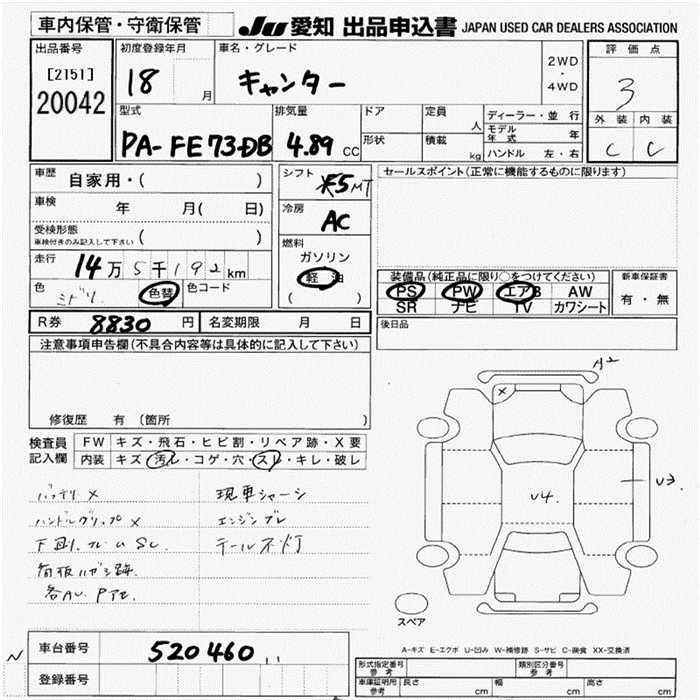 車内保管・守衛保管
JU 愛知 出品申込書 JAPAN USED CAR DEALERS ASSOCIATION
出品番号
[2151]
20042
初度登録年月
18 月
車名・グレード
キャンター
2WD
・
4WD
評価点
3
外装 内装
C C
型式
PA-FE73DB
排気量
4.89 CC
ドア
形状
定員
人
積載
kg
ディーラー・並行
モデル年式 年
ハンドル 左・右
車歴 自家用・( )
車検 年 月( 日)
受検形態
車検付きのみ記入して下さい ( )
走行 14万5千192km
色 ミドリ 色替 色コード
シフト 5MT
冷房 AC
燃料
ガソリン
軽油
( )
セールスポイント(正常に機能するものに限ります)
装備品(純正品に限り○をつけてください)
PS PW エアB AW
SR ナビ TV カワシート
新車保証書
有・無
後日品
R券 8830円 名変期限 月 日
注意事項申告欄(不具合内容等は具体的に記入して下さい)
修復歴 有 (箇所 )
検査員記入欄
FW キズ・飛石・ヒビ割・リペア跡・X要
内装 キズ・汚レ・コゲ・穴・スレ・キレ・破レ
バッテリーX
ハンドルグリップX
下廻リ、フレームSC.
看板ハガシ跡.
各AU. Pアセ.
現車シャーシ
エンジンブレ
テール不灯
A2
X
U4
U3
スペア
A-キズ E-エクボ U-凹み W-補修跡 S-サビ C-腐食 XX-交換済
車台番号 520460
登録番号
N
形式指定番号
参考
類別区分番号
参考
車庫証明用
参考
長さ cm 幅 cm 高さ cm